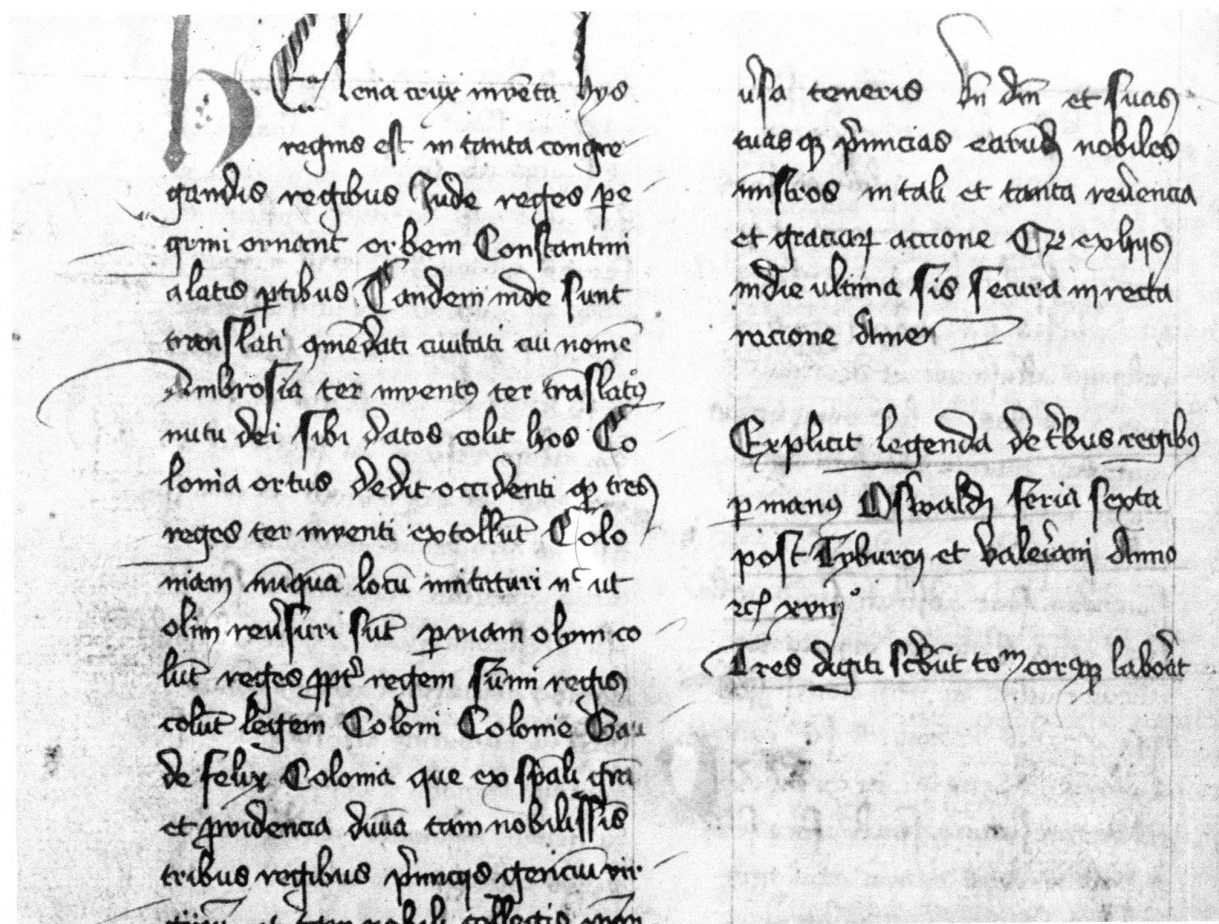 Elena crux inventa hys
regins est in tanta congre
gandis regibus Jude reges pe
grini ornant orbem Constantini
a latis ptibus Tandem inde sunt
translati qmēdati civitati cu nome
Ambrosia ter invent9 ter trāslat9
nutu dei sibi datos colit hos Co
lonia ortus dedit occidenti qz tres
reges ter inventi extollūt Colo
niam nūquā locū mitaturi nc ut
olim reūsuri sūt p viam olym co
lūt reges ppt regem sūmi regis
colūt legem Coloni Colonie Gau
de felix Colonia que ex spāli grā
et pvidencia diūa tam nobilissīs
tribus regibus pīmicijs genciū vir
ūsa teneris Bn dīm et suas
tuas qz pīncias earūdz nobiles
mīstros in tali et tanta reūencia
et graciarz accione Qz ex hijs
in die ultima sis secura in recta
racione Amen
Explicit legenda de tbus regibz
p man9 Oswaldi feria sexta
post Tyburcij et Valeriani Anno
xviijo
Tres digiti scbūt tom corqz labōat